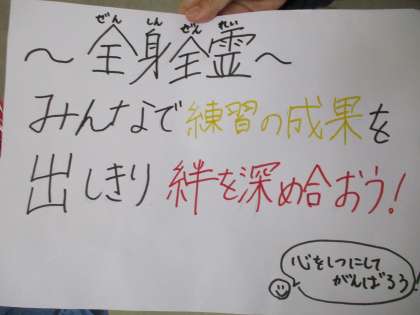 ぜんしんぜんれい
～全身全霊～
みんなで練習の成果を
出しきり絆を深め合おう!
心を1つにして
がんばろう!